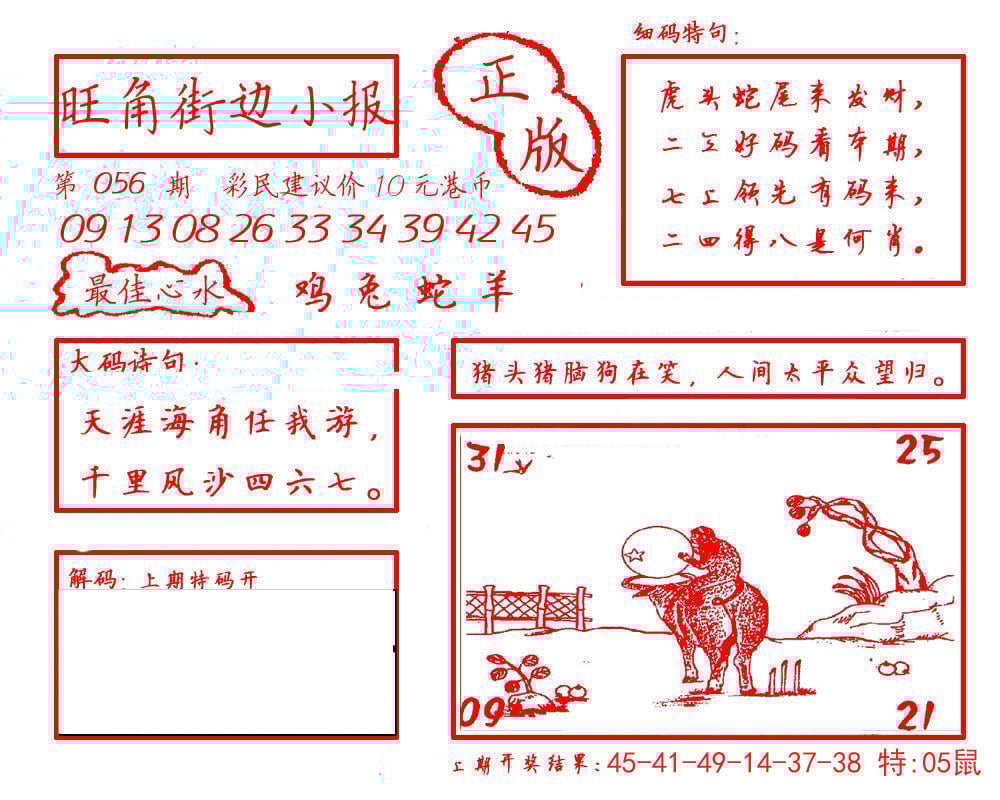 旺角街边小报
正版
第 056 期 彩民建议价 10 元港币
09 13 08 26 33 34 39 42 45
最佳心水 鸡 兔 蛇 羊
细码特句：
虎头蛇尾来发财，
二三好码看本期，
七上领先有码来，
二四得八是何肖。
大码诗句：
天涯海角任我游，
千里风沙四六七。
猪头猪脑狗在笑，人间太平众望归。
解码：上期特码开
31 25
09 21
上期开奖结果：45-41-49-14-37-38 特:05鼠